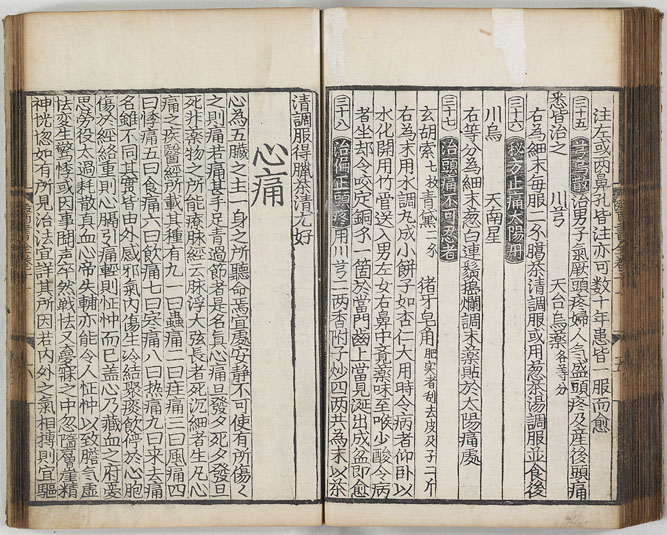 注左或两鼻孔皆注亦可数十年患皆一服而愈
三十五 芎烏散 治男子氣厥頭疼婦人氣盛頭疼及産後頭痛
悉皆治之 川芎 天台烏藥各等分
右為細末每服二分臈茶清調服或用葱茶湯調服並食後
三十六 秘方止痛太陽丹
川烏 天南星
右等分為細末葱白連鬚擣爛調末藥貼於太陽痛處
三十七 治頭痛不可忍者
玄胡索七枚 青黛二分 猪牙皂角肥实者刮去皮及子二斤
右為末用水調丸成小餅子如杏仁大用時令病者仰卧以
水化開用竹管送入男左女右鼻中竟藥味至喉少酸令病
者坐却令咬定銅一箇於當門齒上當見涎出成盆即愈
三十八 治偏正頭疼 用川芎二两香附子炒四两共為末以茶
清調服得臘茶清尤好
心痛
心為五臟之主一身之所聽命焉宜處安静不可使有所傷々
之則痛若痛甚手足青過節者是名真心痛旦發夕死夕發旦
死非藥物之所能療脉經云脉浮大弦長者死沉細者生凡心
痛之疾醫經所載其種有九一曰蟲痛二曰疰痛三曰風痛四
曰悸痛五曰食痛六曰飲痛七曰寒痛八曰热痛九曰来去痛
名雖不同其實皆由外感邪氣内傷生冷結聚痰飲停於心胞
傷於經絡重則心膈引痛輕則怔忡而已盖心乃藏血之府妄
思勞役太過耗散真血心帝失輔亦能令人怔忡以致膽氣虚
怯变生驚悸或因事聞声卒然戰怯又夢寐之中忽墮層崖精
神恍惚如有所見治法宜詳其所因若内外之氣相搏則宜驅